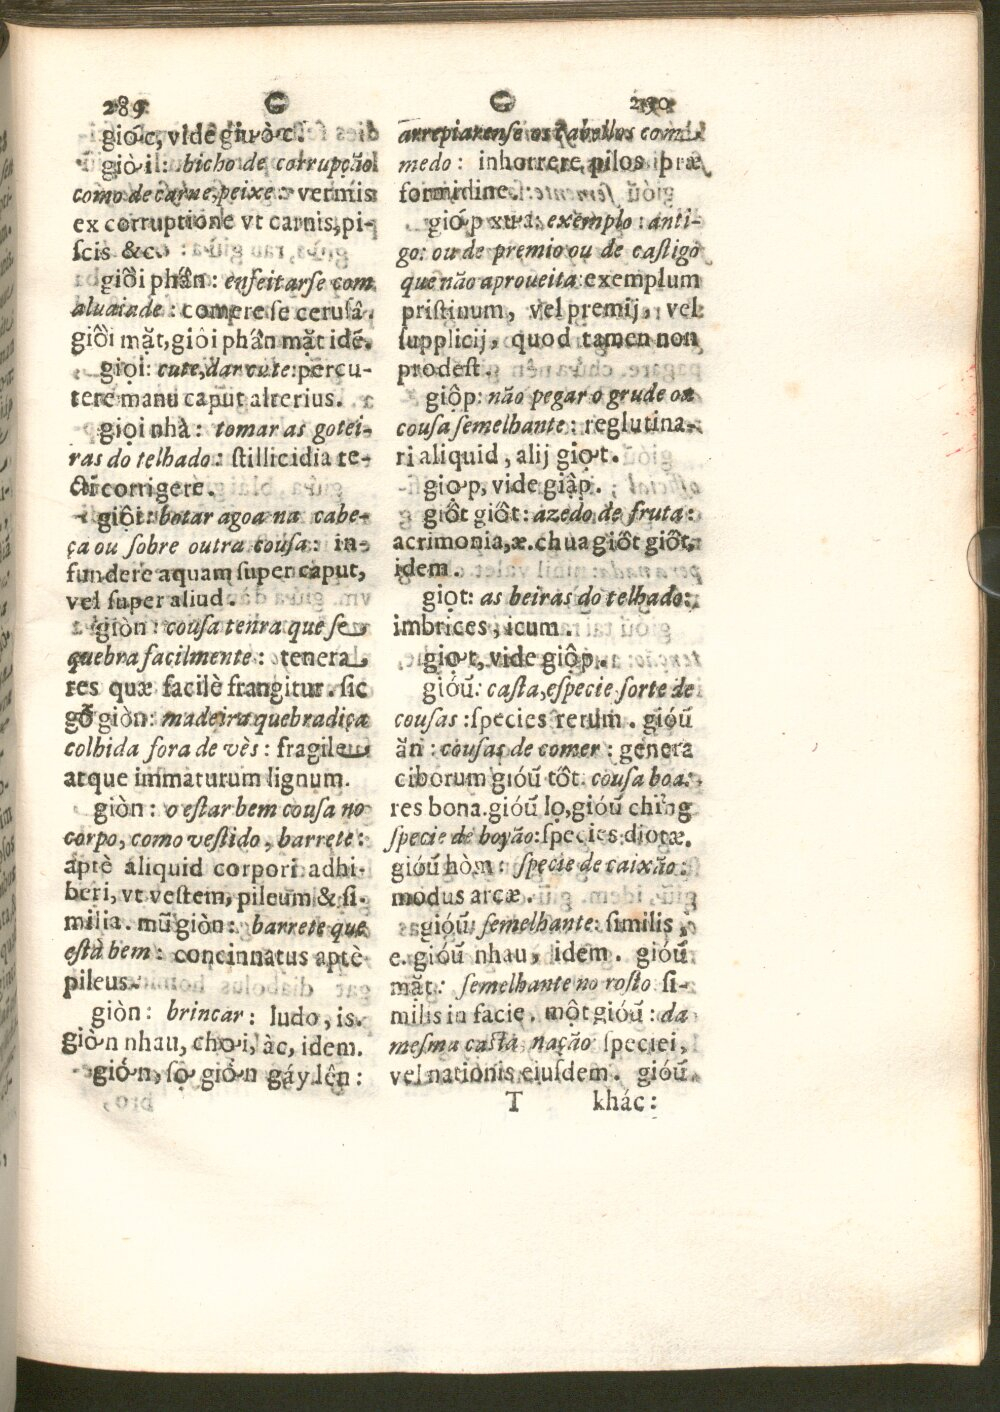 289 G
gió c, vide giưò c.
giò i: bicho de corrupção
como de carne, peixe: vermis
ex corruptione vt carnis, pi-
ſcis &c.
giồi phấn: enfeitarſe com
aluaiade: compere ſe ceruſâ.
giồi mặt, giôi phấn mặt idẽ.
giọi: cute, dar cute: percu-
tere manu caput alterius.
giọi nhà: tomar as gotei-
ras do telhado: ſtillicidia te-
cti corrigere.
giội: botar agoa na cabe-
ça ou ſobre outra couſa: in-
fundere aquam ſuper caput,
vel ſuper aliud.
giòn: couſa tenra que ſe
quebra facilmente: tenera
res quæ facilè frangitur. ſic
gỗ giòn: madeira quebradiça
colhida fora de vès: fragile
atque immaturum lignum.
giòn: o eſtar bem couſa no
corpo, como veſtido, barrete:
aptè aliquid corpori adhi-
beri, vt veſtem, pileum & ſi-
milia. mũ giòn: barrete que
eſtà bem: concinnatus aptè
pileus.
giòn: brincar: ludo, is.
giờn nhau, chơi, ác, idem.
giớn, ſợ giờn gáy lên:
G 290
arrepiarenſe os cabellos com
medo: inhorrere pilos præ
formidine.
gióp xưa: exemplo: anti-
go: ou de premio ou de caſtigo
que não aproueita: exemplum
priſtinum, vel premij, vel
ſupplicij, quod tamen non
prodeſt.
giộp: não pegar o grude ou
couſa ſemelhante: reglutina-
ri aliquid, alij giợt.
giợp, vide giập.
giôt giôt: azedo de fruta:
acrimonia, æ. chua giôt giôt,
idem.
giọt: as beiras do telhado:
imbrices, icum.
giợt, vide giộp.
gióũ: caſta, eſpecie, ſorte de
couſas: ſpecies rerum. gióũ
ăn: couſas de comer: genera
ciborum gióũ tôt. couſa boa:
res bona. gióũ lọ, gióũ chĩng
ſpecie de boyão: ſpecies diotæ.
gióũ hòm: ſpecie de caixão:
modus arcæ.
gióũ: ſemelhante: ſimilis,
e. gióũ nhau, idem. gióũ
mặt: ſemelhante no roſto ſi-
milis in facie. một gióũ: da
meſma caſta, nação ſpeciei,
vel nationis eiuſdem. gióũ
T khác: